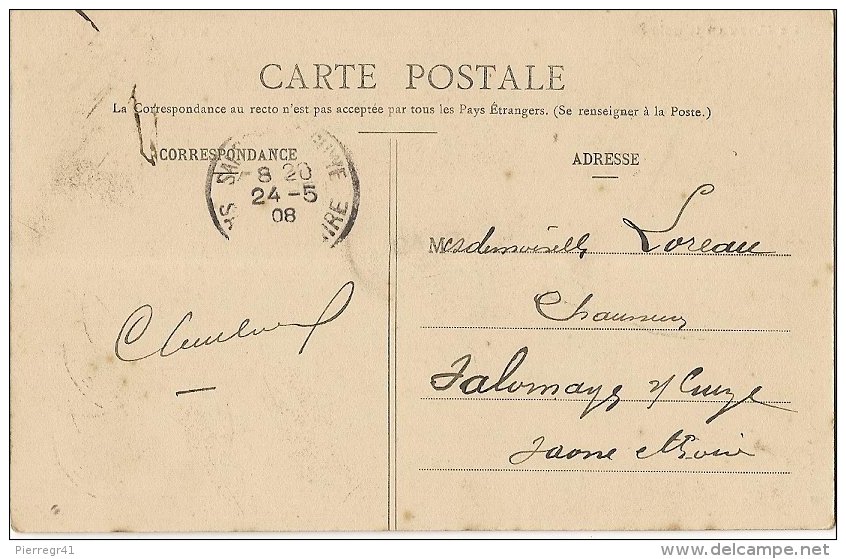 CARTE POSTALE
La Correspondance au recto n'est pas acceptée par tous les Pays Étrangers. (Se renseigner à la Poste.)
CORRESPONDANCE
ADRESSE
8 20
24 - 5
08
Mesdemoiselles Loreau
Chausseur
Salornay s/ Guye
Saone & Loire
Pierregr41
delcampe.net